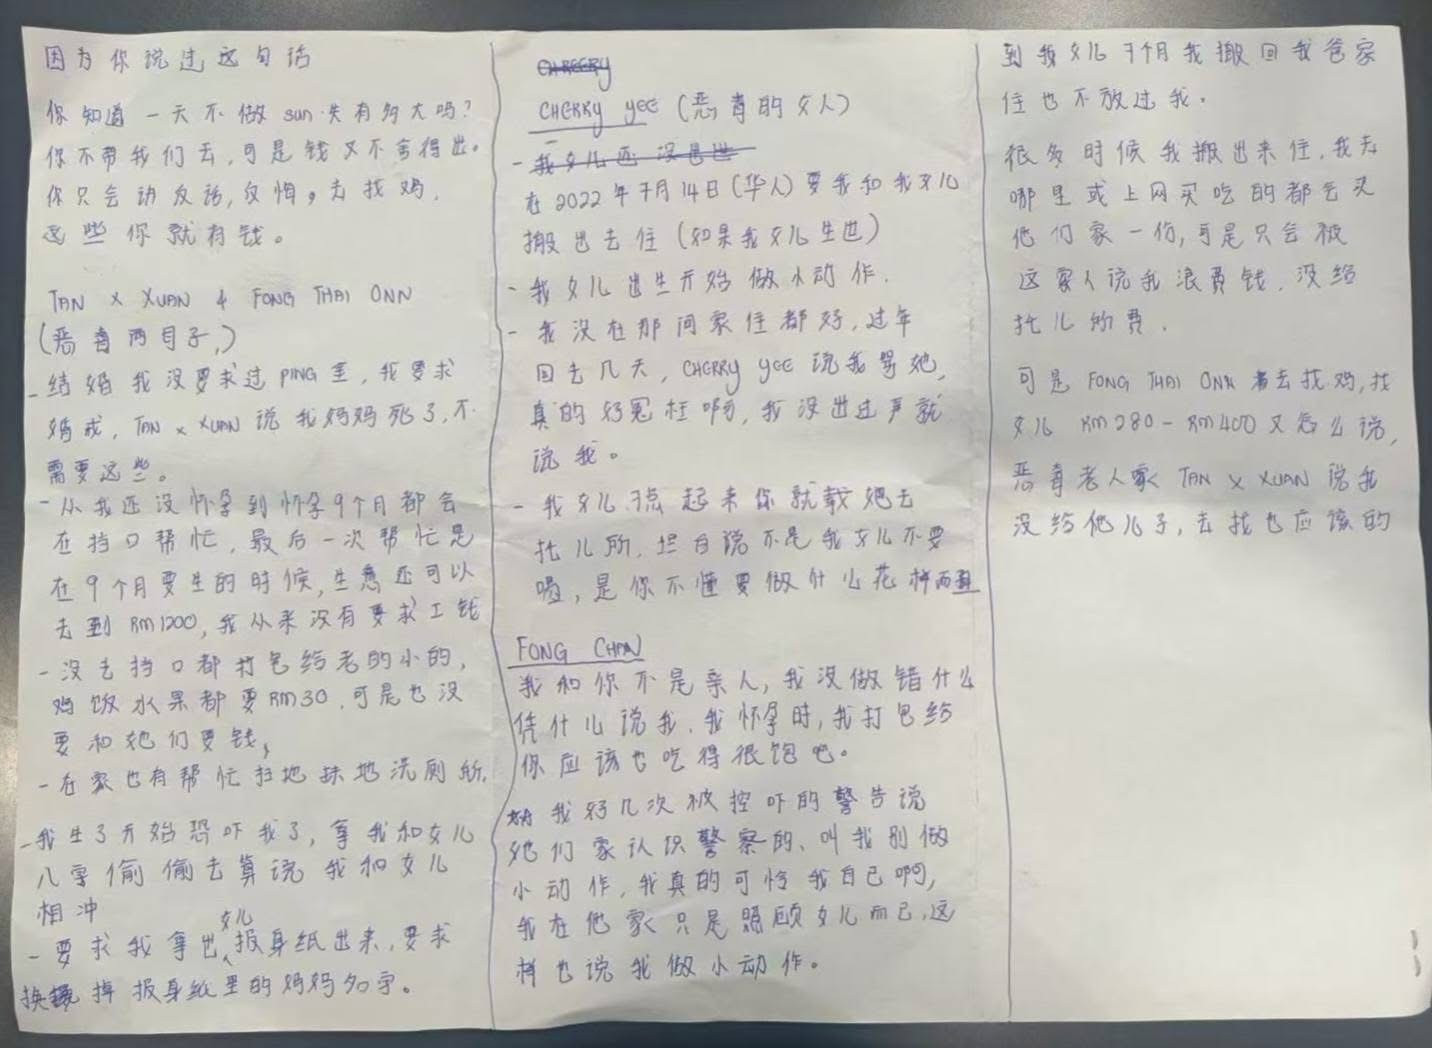 因为你说过这句话
你知道一天不做 sun 失有多大吗?
你不带我们去,可是钱又不舍得出。
你只会讲反话,反悔,去找鸡,
这些你就有钱。
TAN X XUAN & FONG THAI ONN
(恶毒两母子,)
- 结婚我没要求过 PING 金,我要求
婚戒, TAN X XUAN 说我妈妈死了,不
需要这些。
- 从我还没怀孕到怀孕9个月都会
在挡口帮忙,最后一次帮忙是
在9个月要生的时候,生意还可以
去到 RM1200,我从来没有要求工钱
- 没去挡口都打包给老的小的,
鸡饭水果都要RM30,可是也没
要和她们要钱,
- 在家也有帮忙扫地抹地洗厕所,
- 我生了开始恐吓我了,拿我和女儿
八字偷偷去算说我和女儿
相冲
- 要求我拿出女儿报身纸出来,要求
换掉报身纸里的妈妈名字。
CHERRY
CHERRY YEE (恶毒的女人)
- 我女儿还没出世
在2022年7月14日(华人)要我和我女儿
搬出去住(如果我女儿生世)
- 我女儿出生开始做小动作.
- 我没在那间家住都好,过年
回去几天, CHERRY YEE 说我骂她,
真的好冤枉啊,我没出过声就
说我。
- 我女儿7点起来你就载她去
托儿所,坦白说不是我女儿不要
喝,是你不懂要做什么花样而且
FONG CHAN
我和你不是亲人,我没做错什么
凭什么说我,我怀孕时,我打包给
你应该也吃得很饱吧。
我好几次被控吓的警告说
她们家认识警察的、叫我别做
小动作,我真的可怜我自己啊,
我在他家只是照顾女儿而已,这
样也说我做小动作。
到我女儿7个月我搬回我爸家
住也不放过我.
很多时候我搬出来住,我去
哪里或上网买吃的都会买
他们家一份,可是只会被
这家人说我浪费钱,没给
托儿所费.
可是 FONG THAI ONN 去找鸡,找
女儿 RM280 - RM400 又怎么说,
恶毒老人家 TAN X XUAN 说我
没给他儿子,去找也应该的